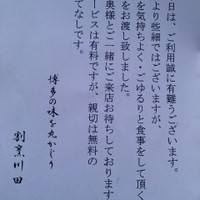 日は、ご利用誠に有難うございます。
より些細ではございますが、
を気持ちよく・ごゆるりと食事をして頂く
をお渡し致しました。
奥様とご一緒にご来店お待ちしております
ービスは有料ですが、親切は無料の
てなしです。
博多の味を丸かじり
割烹川田